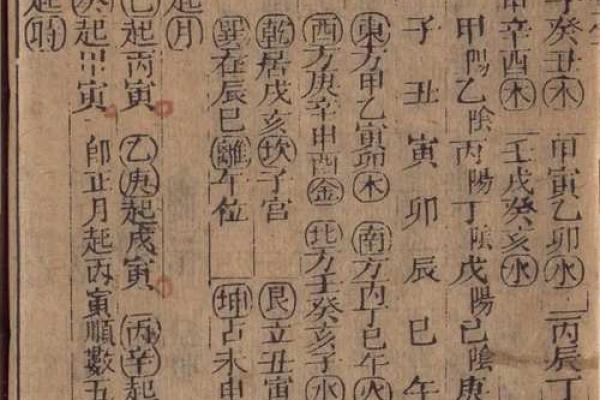 子癸丑木 甲寅乙卯水 丙辰丁
申辛酉木 壬戌癸亥水
甲陽乙陰丙陽丁陰戊陽己陰庚
子丑寅卯辰巳午
東方甲乙寅卯木 南方丙丁巳午火
西方庚辛申酉金 北方壬癸亥子水
乾居戌亥坎子宮 艮立丑寅
巽在辰巳離午位 坤占未申
起月
己起丙寅 乙庚起戊寅 丙辛起
癸起甲寅 即正月起丙寅順數五
起時